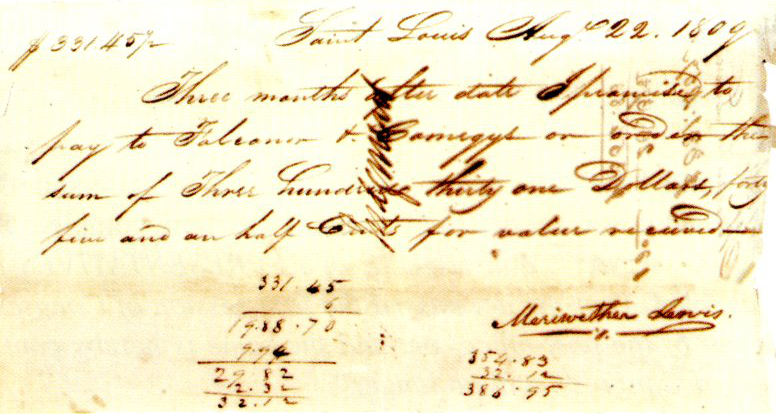 $331.45½ Saint Louis Augt 22. 1809
Three months after date I promise to
pay to Falconer & Comegys or order the
sum of Three hundered thirty one Dollars, forty
five and an half Cents for value received—
Meriwether Lewis.
331.45
6
1988.70
9.94
29.82
2.32
32.12
354.83
32.12
386.95